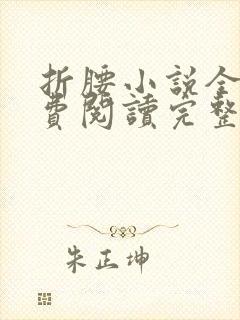 折腰小說全
費閱讀完整
朱正坤